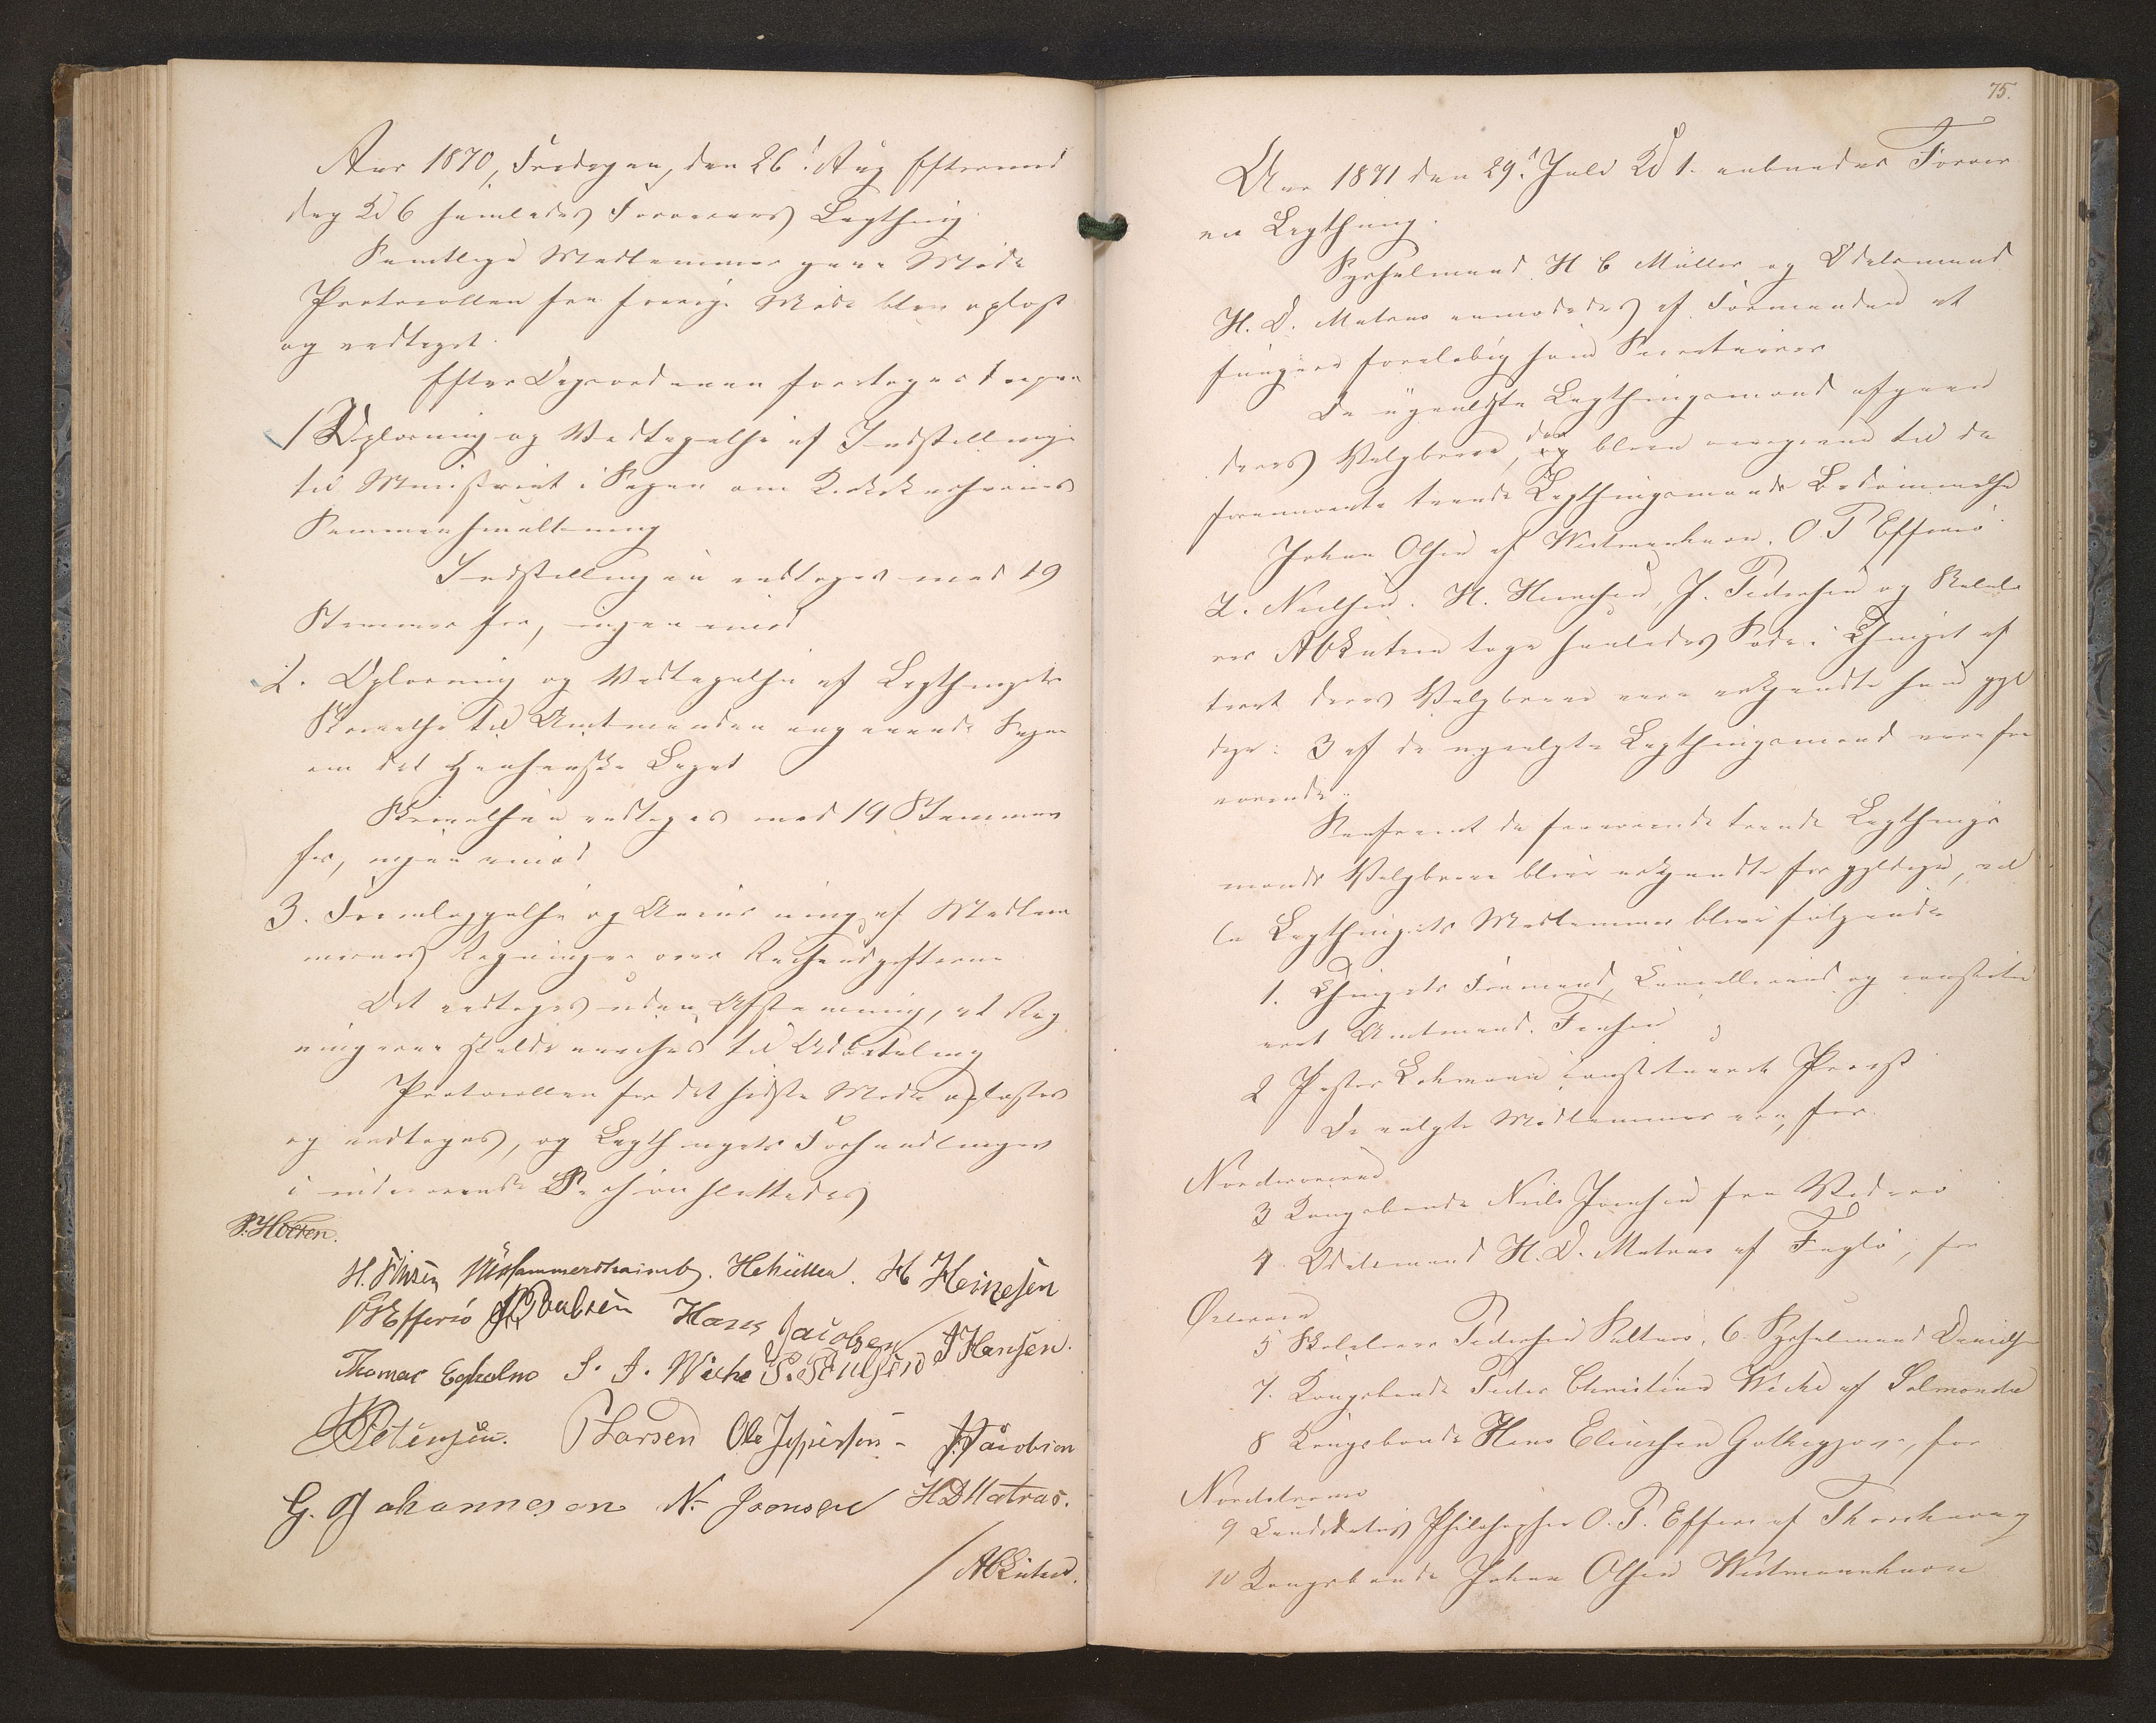 Aar 1870, Fredagen, den 26d Aug Eftermid
dag Kl 6 samledes Færøernes Lagthing.
Samtlige Medlemmer gave Møde
Protocollen for forrige Møde blev oplæst
og vedtaget.
Efter Dagsordenen foretoges
1 Oplæsning og Vedtagelse af Indstilling
til Ministeriet i Sagen om
Sammensmeltning
Indstillingen vedtoges med 19
Stemmer for, ingen imod
2. Oplæsning og Vedtagelse af Lagthingets
Skrivelse til Amtmanden angaaende Sagen
om det Hansenske Legat
Skrivelsen vedtoges med 19 Stemmer
for, ingen imod
3. Fremlæggelse og Anvisning af Medlem
mernes Regninger over Reiseudgifterne
Det vedtoges uden Afstemning, at Reg
ningerne skulde anvises til Udbetaling
Protocollen for det sidste Møde oplæstes
og vedtoges, og Lagthingets Forhandlinger
i indeværende Session sluttedes
P. Holten.
H. Finsen Hammershaimb. HCMüller. H Heinesen
OPEffersö Poulsen Hans Jacobsen J Hansen.
Thomas Egholm P. Poulsen
Petersen. PLarsen Ole Jespersen - Jacobsen
G. Johannesen N. Joensen HDMatras.
75.
Aar 1871 den 29d Juli Kl 1. aabnedes Færøer
nes Lagthing.
Sysselmand H C Müller og Odelsmand
H. D. Matras anmodedes af Formanden at
fungere foreløbig som Secretairer
De nyvalgte Lagthingsmænd afgave
deres Valgbreve, der bleve overgivne til de
forenævnte tvende Lagthingsmænds Bedømmelse
Johan Olsen af Westmanhavn. O. P Effersö
Nielsen. H. Heinesen, J. Pedersen og Skolelæ
rer toge saaledes Sæde i Thinget
deres Valgbreve vare erkjendte som gyl
dige: 3 af de nyvalgte Lagthingsmænd vare fra
værende.
Saafremt de fraværende tvende Lagthings
mænds Valgbreve blive erkjendte for gyldige, vil
le Lagthingets Medlemmer blive følgende
1. Thingets Formand, Cancelliraad og constitu
eret Amtmand. Finsen
2 Pastor Lohmann constitueret Provst
De valgte Medlemmer ere, for
Norderøerne
3 Kongsbonde Niels Joensen fra Viderø
4 Odelsmand H. D. Matras af Fuglø, for
Østerø
5 Skolelærer Pedersen Saltnæs, 6. Sysselmand Davidsen
7. Kongsbonde Peder Christian Weihe af Selmondar
8 Kongsbonde Hans Eliesen Gothegjov, for
Nordstrømø
9 Candidatus Philosophiæ O. P. Effersø af Thorshavn og
10 Kongsbonde Johan Olsen Westmanhavn